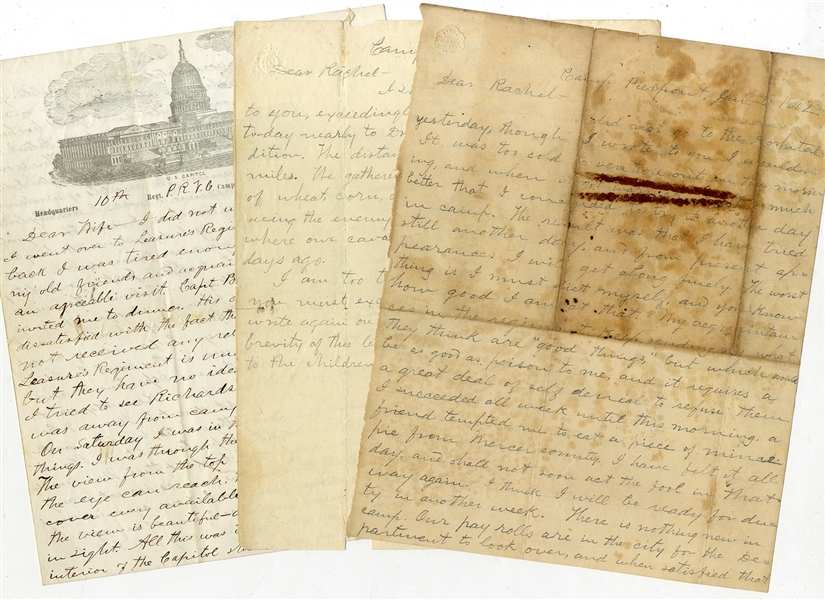 U. S. CAPITOL
Headquarters 10th Regt. P. R. V. C. Camp
Dear Wife— I did not w
I went over to Leasure's Regi
back I was tired enou
my old friends and acquai
an agreeable visit. Capt B
invited me to dinner. His
dissatisfied with the fact th
not received any re
Leasure's Regiment is
but they have no ide
I tried to see Richards
was away from camp
On Saturday I was in
things. I was through the
The view from the top
the eye can reach,
cover every available
the view is beautiful—
in sight. All this was
interior of the Capitol
Camp
Dear Rachel—
I
to you, exceedingly
to-day nearly to Dr
dition. The distan
miles. The gathere
of wheat, corn,
seeing the enemy
where our cava
days ago.
I am too t
you must exc
write again on
brevity of this le
to the children
Camp Pierpont, Jan. 1862
Dear Rachel—
I did not go to the hospital
yesterday, though I wrote to you I would
It was too cold
ing, and when
better that I
in camp. The result was that I have tried
still another day, and from present ap-
pearances I will get along finely. The worst
thing is I must diet myself, and you know
how good I am at that. My acquaintan
ces in the regiment
they think are "good things," but which would
be as good as poison to me, and it requires a
a great deal of self denial to refuse them.
I succeeded all week until this morning, a
friend tempted me to eat a piece of mince
pie from Mercer county. I have felt it all
day, and shall not soon act the fool in that
way again. I think I will be ready for du-
ty in another week. There is nothing new in
camp. Our pay rolls are in the city for the De-
partment to look over, and when satisfied that